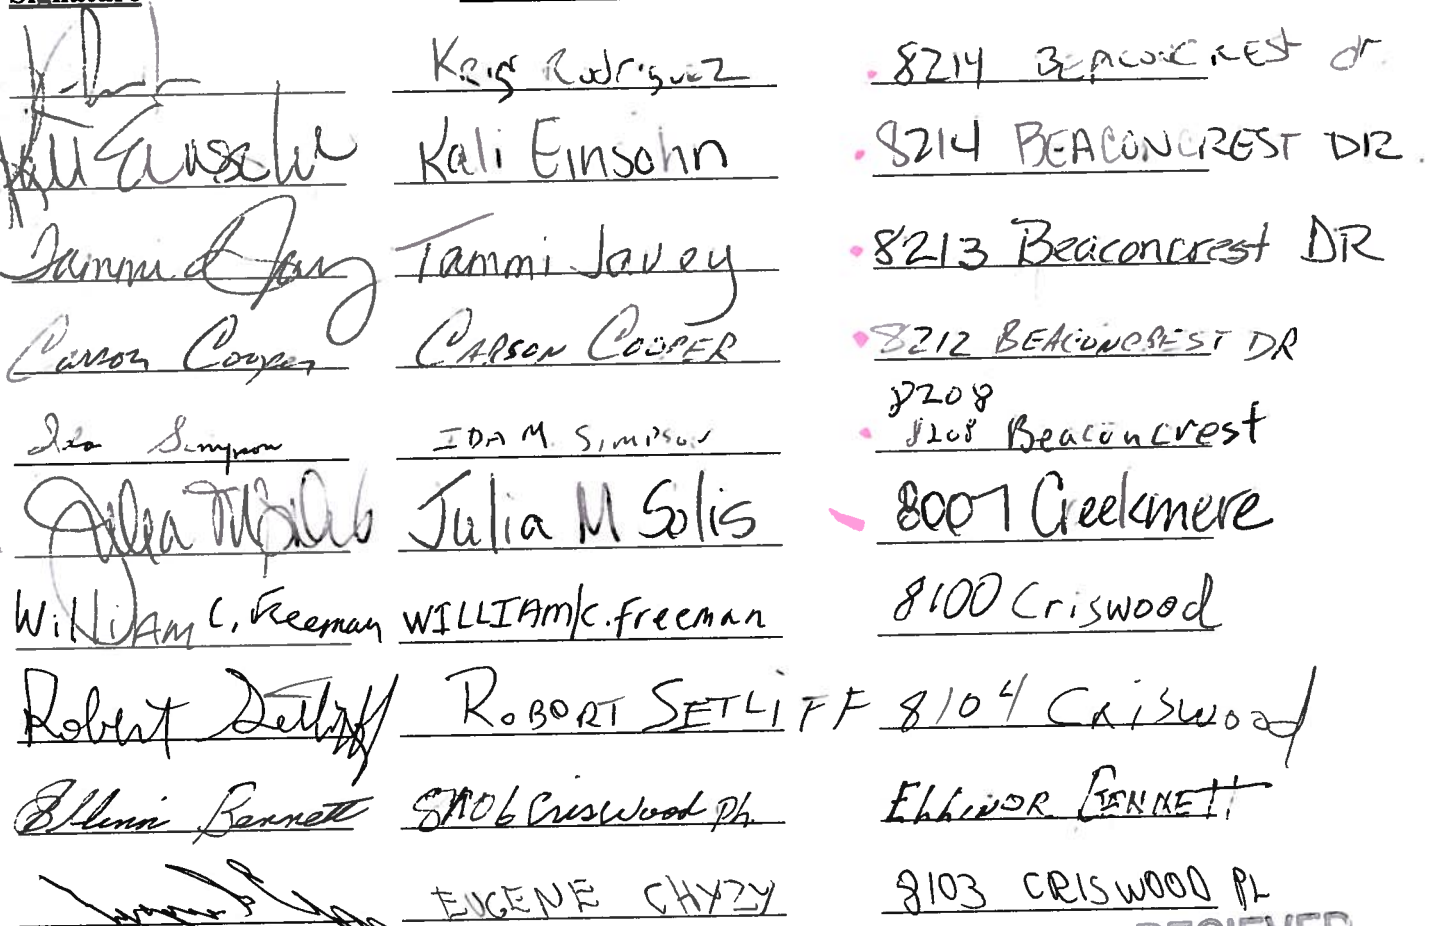 Signature
Kris Rodriguez 8214 BEACONCREST dr.
Kali Einsohn Kali Einsohn 8214 BEACONCREST DR.
Tammi Javey 8213 Beaconcrest DR
Carson Cooper CARSON COOPER 8212 BEACONCREST DR
8208
Ida Simpson IDA M. SIMPSON 8208 Beaconcrest
Julia M Solis Julia M Solis 8007 Creekmere
WilliAM C. Freeman WILLIAM C. freeman 8100 Criswood
Robert Setliff ROBORT SETLIFF 8104 CRiSwood
Ellinor Bennett 8106 Criswood Pl. ELLINOR BENNETT
EUGENE CHYZY 8103 CRISWOOD PL
RECIEVED